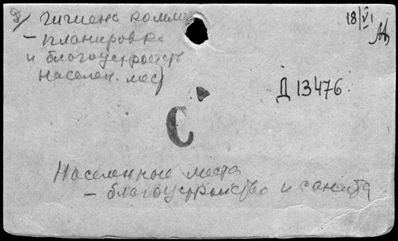 гигиена комму
18/VI
- планировка
и благоустройств
населен. мест
Д 13476
С
Населенные места
- благоустройство и санита